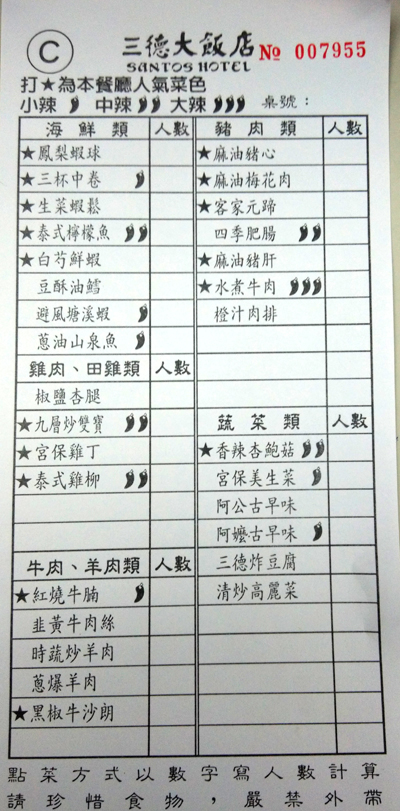 C
三德大飯店
SANTOS HOTEL
No 007955
打★為本餐廳人氣菜色
小辣 中辣 大辣 桌號：
海鮮類 人數
★鳳梨蝦球
★三杯中卷
★生菜蝦鬆
★泰式檸檬魚
★白芍鮮蝦
豆酥油鱈
避風塘溪蝦
蔥油山泉魚
雞肉、田雞類 人數
椒鹽杏腿
★九層炒雙寶
★宮保雞丁
★泰式雞柳
牛肉、羊肉類 人數
★紅燒牛腩
韭黃牛肉絲
時蔬炒羊肉
蔥爆羊肉
★黑椒牛沙朗
豬肉類 人數
★麻油豬心
★麻油梅花肉
★客家元蹄
四季肥腸
★麻油豬肝
★水煮牛肉
橙汁肉排
蔬菜類 人數
★香辣杏鮑菇
宮保美生菜
阿公古早味
阿嬤古早味
三德炸豆腐
清炒高麗菜
點菜方式以數字寫人數計算
請珍惜食物，嚴禁外帶